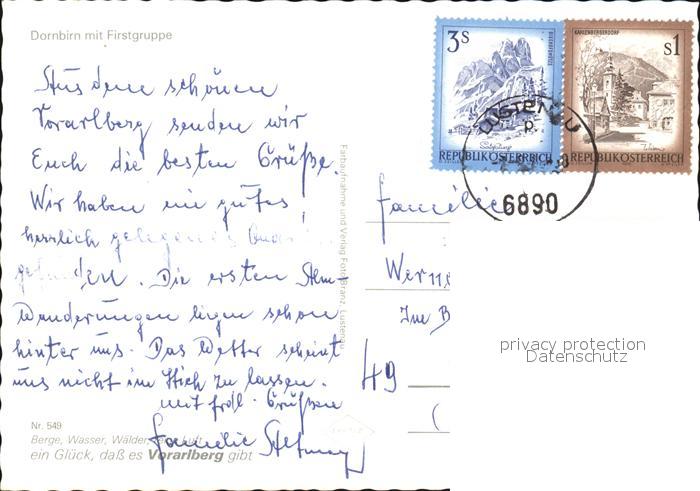 Dornbirn mit Firstgruppe
Aus dem schönen
Vorarlberg senden wir
Euch die besten Grüße.
Wir haben ein gutes
herrlich gelegenes
gefunden. Die ersten Alm-
Wanderungen liegen schon
hinter uns. Das Wetter scheint
uns nicht im Stich zu lassen.
mit frdl. Grüßen
Familie
Nr. 549
Berge, Wasser, Wälder,
ein Glück, daß es Vorarlberg gibt
Farbaufnahme und Verlag Foto Branz, Lustenau
3 S
BISCHOFSMÜTZE
Salzburg
REPUBLIK ÖSTERREICH
S 1
KAHLENBERGERDORF
Wien
REPUBLIK ÖSTERREICH
LUSTENAU
6890
Familie
Wern
Im B
49
privacy protection
Datenschutz